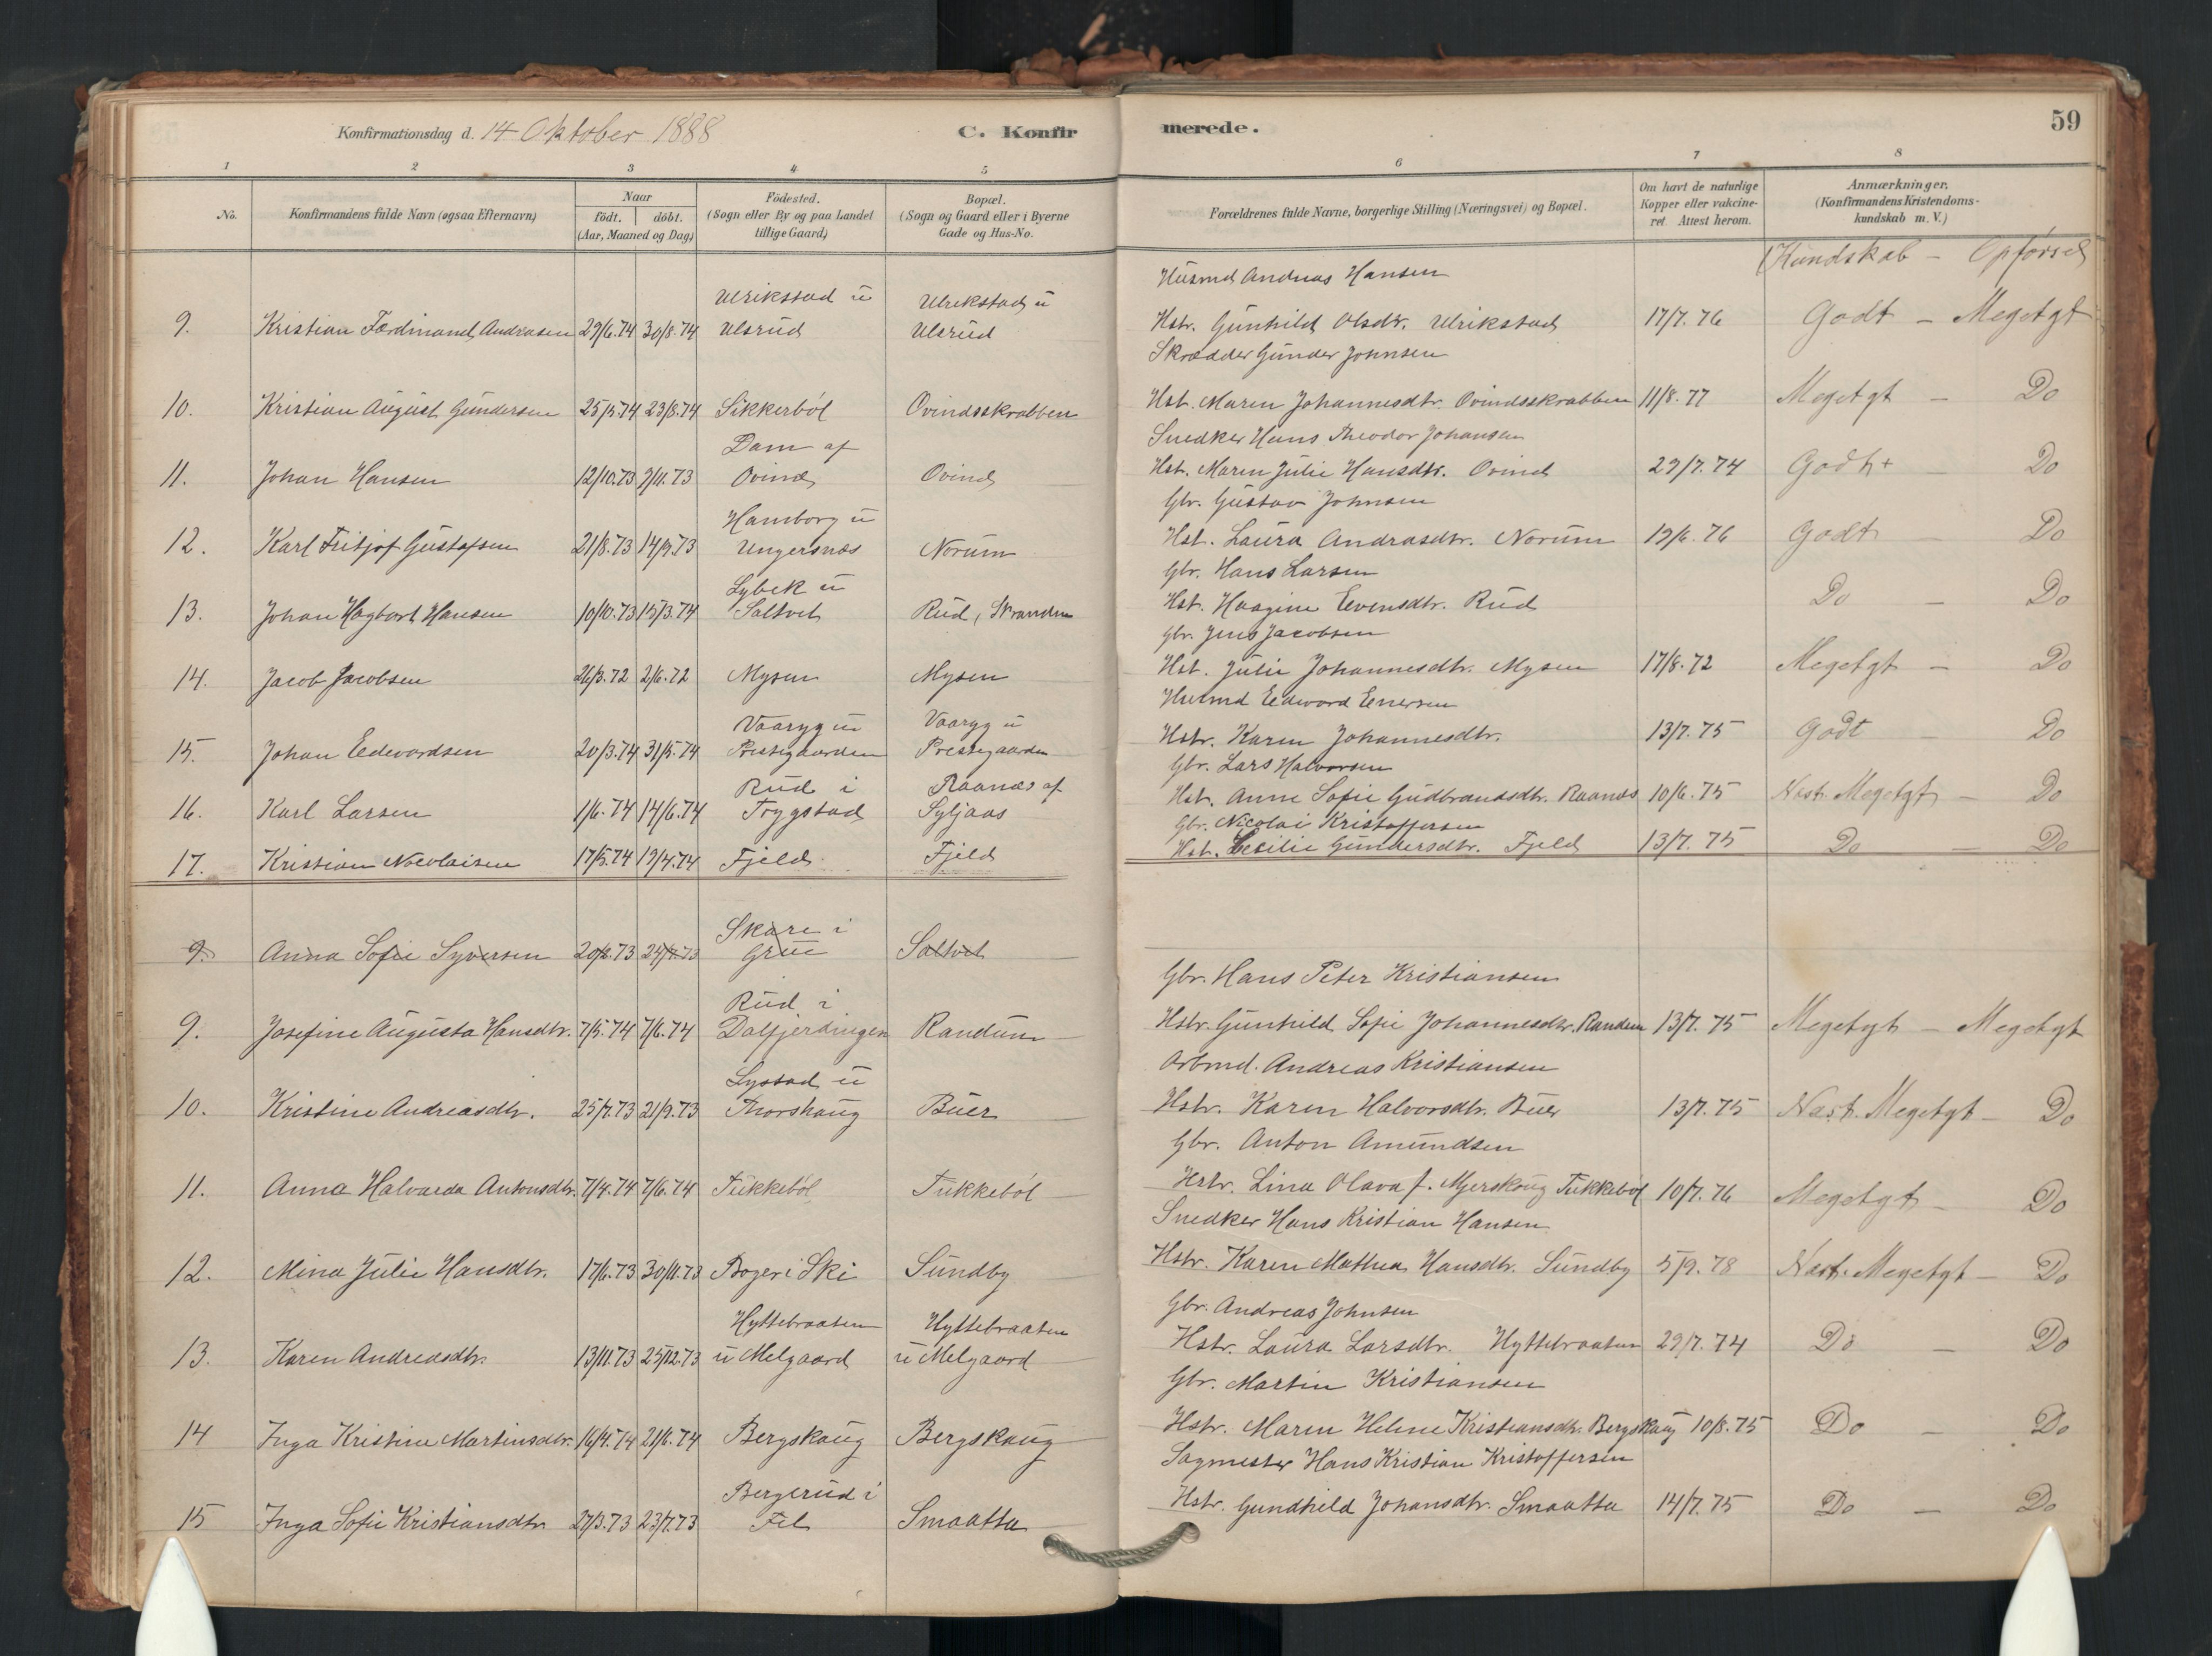 Konfirmationsdag d. 14 Oktober 1888
C. Konfir
merede.
59
1 2 3 4 5 6 7 8
No.
Konfirmandens fulde Navn (ogsaa Efternavn)
Naar
födt. döbt.
(Aar, Maaned og Dag)
Födested.
(Sogn eller By og paa Landet
tillige Gaard)
Bopæl.
(Sogn og Gaard eller i Byerne
Gade og Hus-No.
Forældrenes fulde Navne, borgerlige Stilling (Næringsvei) og Bopæl.
Om havt de naturlige
Kopper eller vakcine-
ret Attest herom.
Anmærkninger.
(Konfirmandens Kristendoms-
kundskab m. V.)
Kundskab - Opförsel
Husmd Andreas Hansen
Ulrikstad u Ulrikstad u
9. Kristian Ferdinand Andrasen 29/6.74 30/8.74 Ulsrud Ulsrud Hstr. Gunhild Olsdtr. Ulrikstad 17/7.76 Godt - Megetgt
Skrædder Gunder Johnsen
10. Kristian August Gundersen 25/5.74 23/8.74 Sikkerböl Ovindsskrabben Hst. Maren Johannesdtr. Ovindsskrabben 11/8.77 Megetgt - Do
Dam af Snedker Hans Theodor Johansen
11. Johan Hansen 12/10.73 9/11.73 Ovind Ovind Hst. Maren Julie Hansdtr. Ovind 29/7.74 Godt+ - Do
Hamborg u Gbr. Gustav Johnsen
12. Karl Fritjof Gustafsen 21/8.73 14/9.73 Ungersnæs Norum Hst. Laura Andrasdtr. Norum 19/6.76 Godt - Do
Lybek u Gbr. Hans Larsen
13. Johan Hagbart Hansen 10/10.73 15/3.74 Saltvet Rud, Stranden Hst. Haagine Evensdtr. Rud Do - Do
Gbr. Jens Jacobsen
14. Jacob Jacobsen 26/3.72 2/6.72 Mysen Mysen Hst. Julie Johannesdtr. Mysen 17/8.72 Megetgt - Do
Vaaryg u Vaaryg u Husmd Edward Enersen
15. Johan Edevardsen 20/3.74 31/5.74 Prestegaarden Prestegaarden Hstr. Karen Johannesdtr. 13/7.75 Godt - Do
Rud i Raanæs af Gbr. Lars Halvorsen
16. Karl Larsen 1/6.74 14/6.74 Trygstad Syljaas Hst. Anne Sofie Gudbrandsdtr. Raanæs 10/6.75 Næst. Megetgt - Do
Gbr. Nicolai Kristoffersen
17. Kristian Nicolaisen 17/3.74 19/4.74 Fjeld Fjeld Hst. Cecilie Gundersdtr. Fjeld 13/7.75 Do - Do
Skare i
9. Anna Sofie Syversen 20/2.73 Grue Saltvet
Rud i Gbr. Hans Peter Kristiansen
9. Josefine Augusta Hansdtr. 7/5.74 7/6.74 Dalfjerdingen Randum Hstr. Gunhild Sofie Johannesdtr. Randum 13/7.75 Megetgt - Megetgt
Lystad u Arbmd. Andreas Kristiansen
10. Kristine Andreasdtr. 25/7.73 21/9.73 Thorshaug Buer Hstr. Karen Halvorsdtr. Buer 13/7.75 Næst. Megetgt - Do
Gbr. Anton Amundsen
11. Anna Halvarda Antonsdtr. 7/4.74 7/6.74 Tukkeböl Tukkeböl Hstr. Lina Olava f. Myerskoug Tukkeböl 10/7.76 Megetgt - Do
Snedker Hans Kristian Hansen
12. Mina Julie Hansdtr. 17/6.73 30/11.73 Boger i Ski Sundby Hstr. Karen Mathea Hansdtr. Sundby 5/9.78 Næst. Megetgt - Do
Hyttebraaten Hyttebraaten Gbr. Andreas Johnsen
13. Karen Andreasdtr. 13/11.73 25/12.73 u Melgaard u Melgaard Hstr. Laura Larsdtr. Hyttebraaten 29/7.74 Do - Do
Gbr. Martin Kristiansen
14 Inga Kristine Martinsdtr. 16/4.74 21/6.74 Bergskaug Bergskaug Hstr. Maren Helene Kristiansdtr. Bergskaug 10/8.75 Do - Do
Bergerud i Sagmester Hans Kristian Kristoffersen
15 Inga Sofie Kristiansdtr 27/3.73 23/7.73 Fet Smaatta Hstr. Gundhild Johansdtr. Smaatta 14/7.75 Do - Do